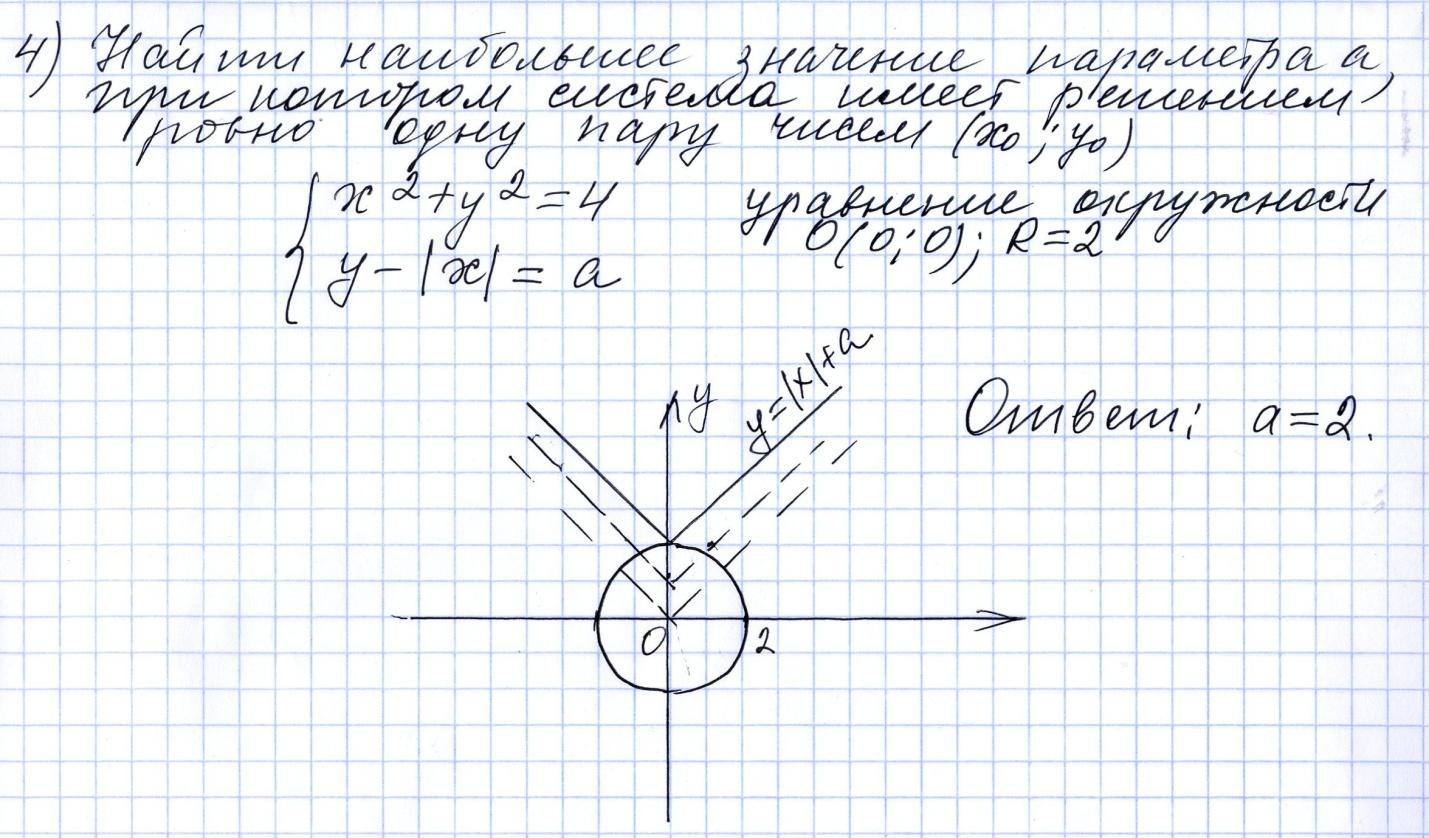 4) Найти наибольшее значение параметра а,
при котором система имеет решением
ровно одну пару чисел (x₀; y₀)
x² + y² = 4 уравнение окружности
O(0; 0); R = 2
y - |x| = a
y = |x| + a
y
Ответ: a = 2.
0 2